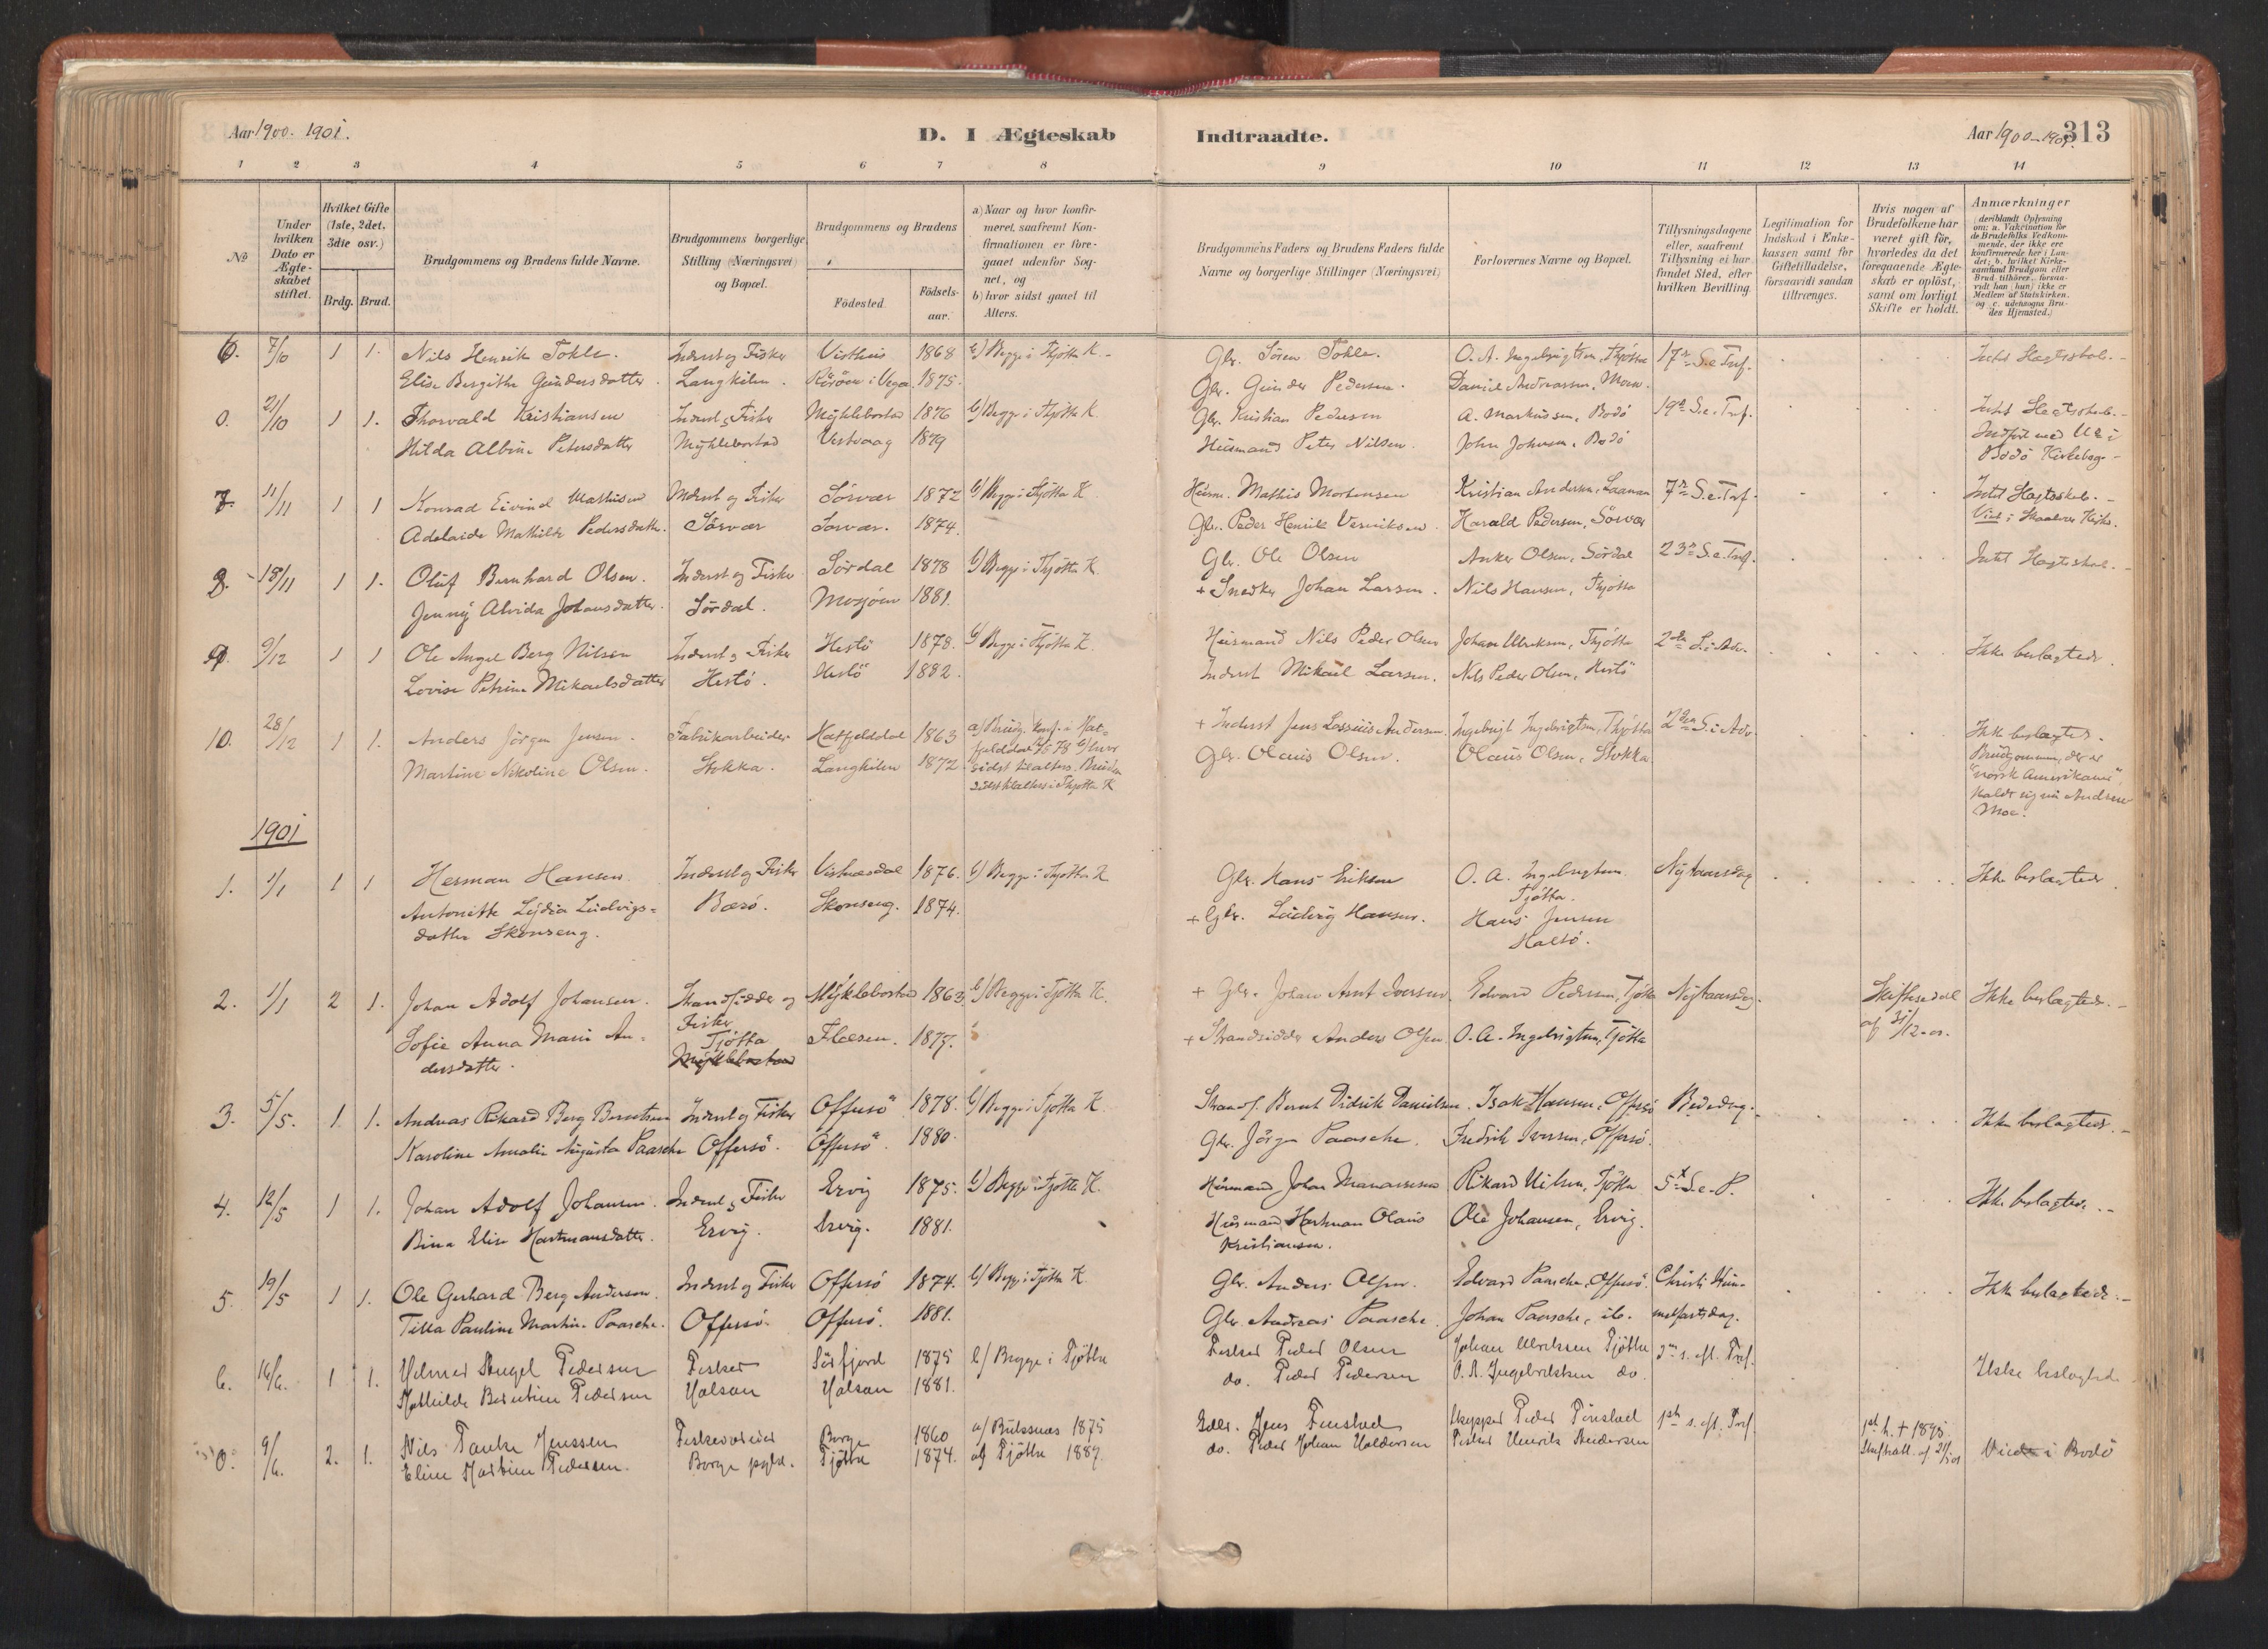 Aar 1900. 1901.
D. I Ægteskab Indtraadte.
Aar 1900-1901. 313
1 2 3 4 5 6 7 8 9 10 11 12 13 14
No
Under hvilken Dato er Ægteskabet stiftet.
Hvilket Gifte (1ste, 2det, 3die osv.)
Brdg. Brud.
Brudgommens og Brudens fulde Navne.
Brudgommens borgerlige Stilling (Næringsvei) og Bopæl.
Brudgommens og Brudens
Födested. Födselsaar.
a) Naar og hvor konfirmeret, saafremt Konfirmationen er foregaaet udenfor Sognet, og
b) hvor sidst gaaet til Alters.
Brudgommens Faders og Brudens Faders fulde Navne og borgerlige Stillinger (Næringsvei)
Forlovernes Navne og Bopæl.
Tillysningsdagene eller, saafremt Tillysning ei har fundet Sted, efter hvilken Bevilling
Legitimation for Indskud i Enkekassen samt for Giftetilladelse, forsaavidt saadan tiltrænges.
Hvis nogen af Brudefolkene har været gift för, hvorledes da det foregaaende Ægteskab er oplöst, samt om lovligt Skifte er holdt.
Anmærkninger
(deriblandt Oplysning om: a. Vakcination for de Brudefolks Vedkommende, der ikke ere konfirmerede her i Landet; b. hvilket Kirkesamfund Brudgom eller Brud tilhörer, forsaavidt han (hun) ikke er Medlem af Statskirken, og c. udensogns Brudes Hjemsted.)
6. 7/10 1 1. Nils Henrik Tokle. Inderst og Fisker Visthus 1868 b) Begge i Thjötta K. Gbr. Sören Tokle. O. A. Ingebrigtsen, Thjötta 17de S. e. Tref.
Elise Bergithe Gundersdatter. Langkilen. Röröen i Vega 1875. Gbr. Gunder Pedersen. Daniel Andreassen,
0. 21/10 1 1. Thorvald Kristiansen Inderst og Fisker Myklebostad 1876 b) Begge i Thjötta K. Gbr. Kristian Pedersen A. Markussen, Bodö 19de S. e. Tref.
Hilda Albine Petersdatter Myklebostad Vestvaag 1879 Husmand Peter Nilsen. John Johnsen, Bodö Indfört med No i
Bodö Kirkebog -
7. 11/11 1 1 Konrad Eivind Mathisen Inderst og Fisker Sörvær 1872 b) Begge i Thjötta K. Husm. Mathis Mortensen Kristian Andersen,
Adelaide Mathilde Pedersdatter. Sörvær Sörvær. 1874. Gbr. Peder Henrik Harald Pedersen, Sörvær
8. 18/11 1 1. Oluf Bernhard Olsen. Inderst og Fisker Sördal 1878 b) Begge i Thjötta K. Gbr. Ole Olsen Anker Olsen, Sördal 23de S. e. Tref.
Jenny Alvida Johansdatter. Sördal. Mosjöen 1881. + Snedker Johan Larsen. Nils Hansen, Thjötta
9. 9/12 1 1 Ole Angel Berg Nilsen Inderst og Fisker Hestö 1878. b) Begge i Thjötta K. Husmand Nils Peder Olsen Johan Ulriksen, Thjötta 2den S. i Adv. Ikke beslægtede.
Lovise Petrine Mikaelsdatter Hestö. Hestö 1882. Inderst Mikael Larsen. Nils Peder Olsen, Hestö
10. 28/12 1 1. Anders Jörgen Jensen. Fabrikarbeider Hatfjelddal 1863 a) Brudg. konf. i Hat- + Inderst Jens Andersen. Ingebrigt Ingebrigtsen, Thjötta 2den S. i Adv. Ikke beslægtede.
Martine Nikoline Olsen. Stokka. Langkilen 1872 fjelddal 78 b) hvor Gbr. Olaus Olsen. Olaus Olsen, Stokka. Brudgommen, der er
sidst til alters. Bruden "norsk Amerikaner",
sidst til alters i Thjötta K. kalder sig nu Andrew
Moe.
1901
1. 1/1 1 1 Herman Hansen Inderst og Fisker Visthusdal 1876. b) Begge i Thjötta K. Gbr. Hans Eriksen O. A. Ingebrigtsen Nytaarsdag Ikke beslægtede.
Antonette Lydia Ludvigs- Bærö. Skonseng. 1874. + Gbr. Ludvig Hansen. Tjötta.
datter Skonseng. Hans Jensen
2. 1/1 2 1. Johan Adolf Johansen. Strandsidder og Myklebostad 1863. b) Begge i Tjötta K. + Gbr. Johan Arnt Iversen Edvard Pedersen, Tjötta Nytaarsdag. Skiftesedel Ikke beslægtede.
Sofie Anna Marie An- Fisker 1877. + Strandsidder Anders Olsen O. A. Ingebrigtsen, Tjötta af 31/12-00.
dersdatter. Tjötta
Myklebostad
3. 5/5. 1. 1. Andreas Rikard Berg Berntsen Inderst og Fisker Offersö 1878. b) Begge i Tjötta K. Strands. Bernt Didrik Danielsen. Isak Hansen, Offersö Bededag. Ikke beslægtede.
Karoline Amalie Augusta Paasche Offersö. Offersö. 1880. Gbr. Jörgen Paasche. Fredrik Iversen, Offersö.
4. 12/5 1 1. Johan Adolf Johansen. Inderst og Fisker Ervig 1875. b) Begge i Tjötta K. Husmand Johan Manassesen Rikard Nilsen, Tjötta 5te S. e. P. Ikke beslægtede.
Bina Elise Hartmansdatter. Ervig. Ervig. 1881. Husmand Hartman Olaus Ole Johansen, Ervig.
Kristiansen.
5. 19/5 1 1. Ole Gerhard Berg Andersen. Inderst og Fisker Offersö 1874. b) Begge i Tjötta K. Gbr. Anders Olsen. Edvard Paasche, Offersö. Christi Him- Ikke beslægtede.
Tilla Pauline Martine Paasche. Offersö. Offersö. 1881. Gbr. Andreas Paasche. Johan Paasche, ib. melfartsdag.
6. 16/6. 1 1. Hilmer Angel Pedersen Fisker Sörfjord 1875 b/ Begge i Tjötta Fisker Peder Olsen Johan Ulriksen Tjötta 2den s. eft. Tref. Ikke beslægtede
Mathilde Berntine Pedersen Halsan Halsan 1881. do. Peder Pedersen O. A. Ingebrigtsen do.
0. 9/6. 2. 1. Nils Tanke Jenssen Borge 1860 a/ Buksnæs 1875 Gbr. Jens Finstad Skipper Peder Finstad 1ste s. eft. Tref. 1ste h. + 1895.
Eline Martine Pedersen. Borge pgld. Tjötta 1874. a/ Tjötta 1889. do. Peder Johan Haldorsen Fisker Henrik Andersen Skifteatt. af Viede i Bodö